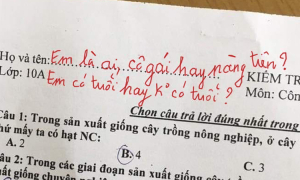 Họ và tên: Em là ai, cô gái hay nàng tiên?
KIỂM TR
Lớp: 10A Em có tuổi hay k° có tuổi?
Môn: Côn
Chọn câu trả lời đúng nhất trong
Câu 1: Trong sản xuất giống cây trồng nông nghiệp, ở cây
thứ mấy ta có hạt NC:
A. 2 B. 4 C. 3
Câu 2: Trong các giai đoạn sản xuất giống cây
xuất giống